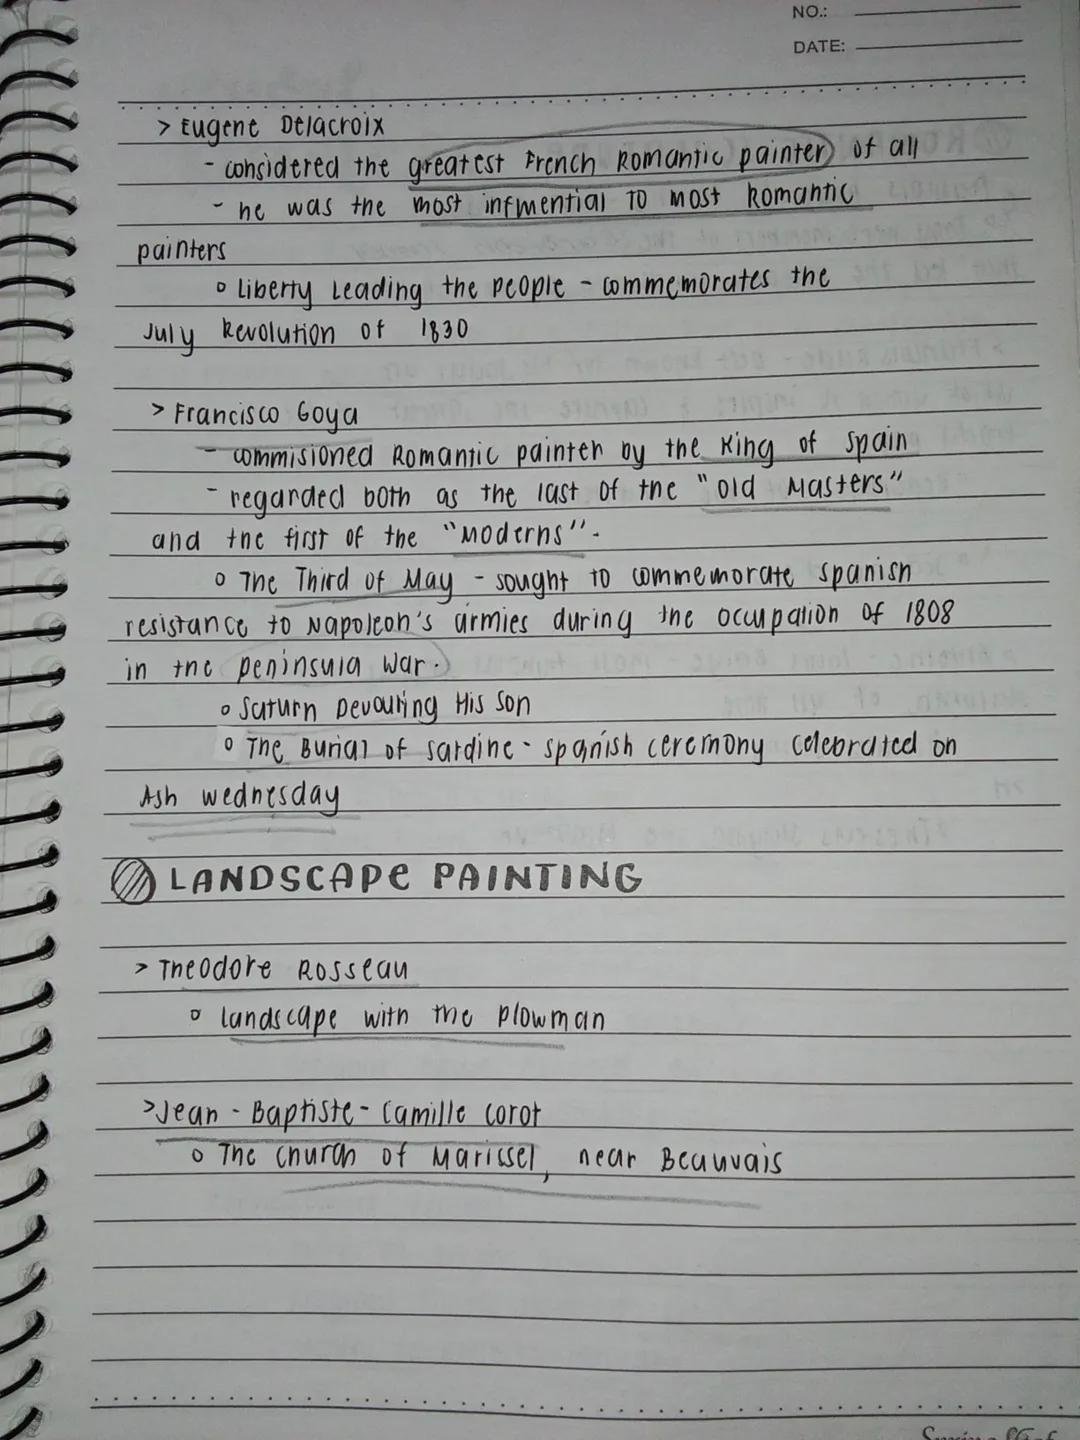 NO.:
DATE:
> Eugene Delacroix
- considered the greatest French Romantic painter of all
- he was the most infmential to most Romantic
painters
o Liberty Leading the People - commemorates the
July Revolution of 1830
> Francisco Goya
- commisioned Romantic painter by the King of Spain
- regarded both as the last of the "Old Masters"
and the first of the "Moderns".
o The Third of May - sought to commemorate spanish
resistance to Napoleon's armies during the occupation of 1808
in the peninsula war.
o Saturn Devouring His Son
o The Burial of sardine - spanish ceremony celebrated on
Ash wednesday
LANDSCAPE PAINTING
> Theodore Rosseau
o landscape with the Plowman
> Jean - Baptiste - Camille Corot
o The church of Marissel, near Beauvais